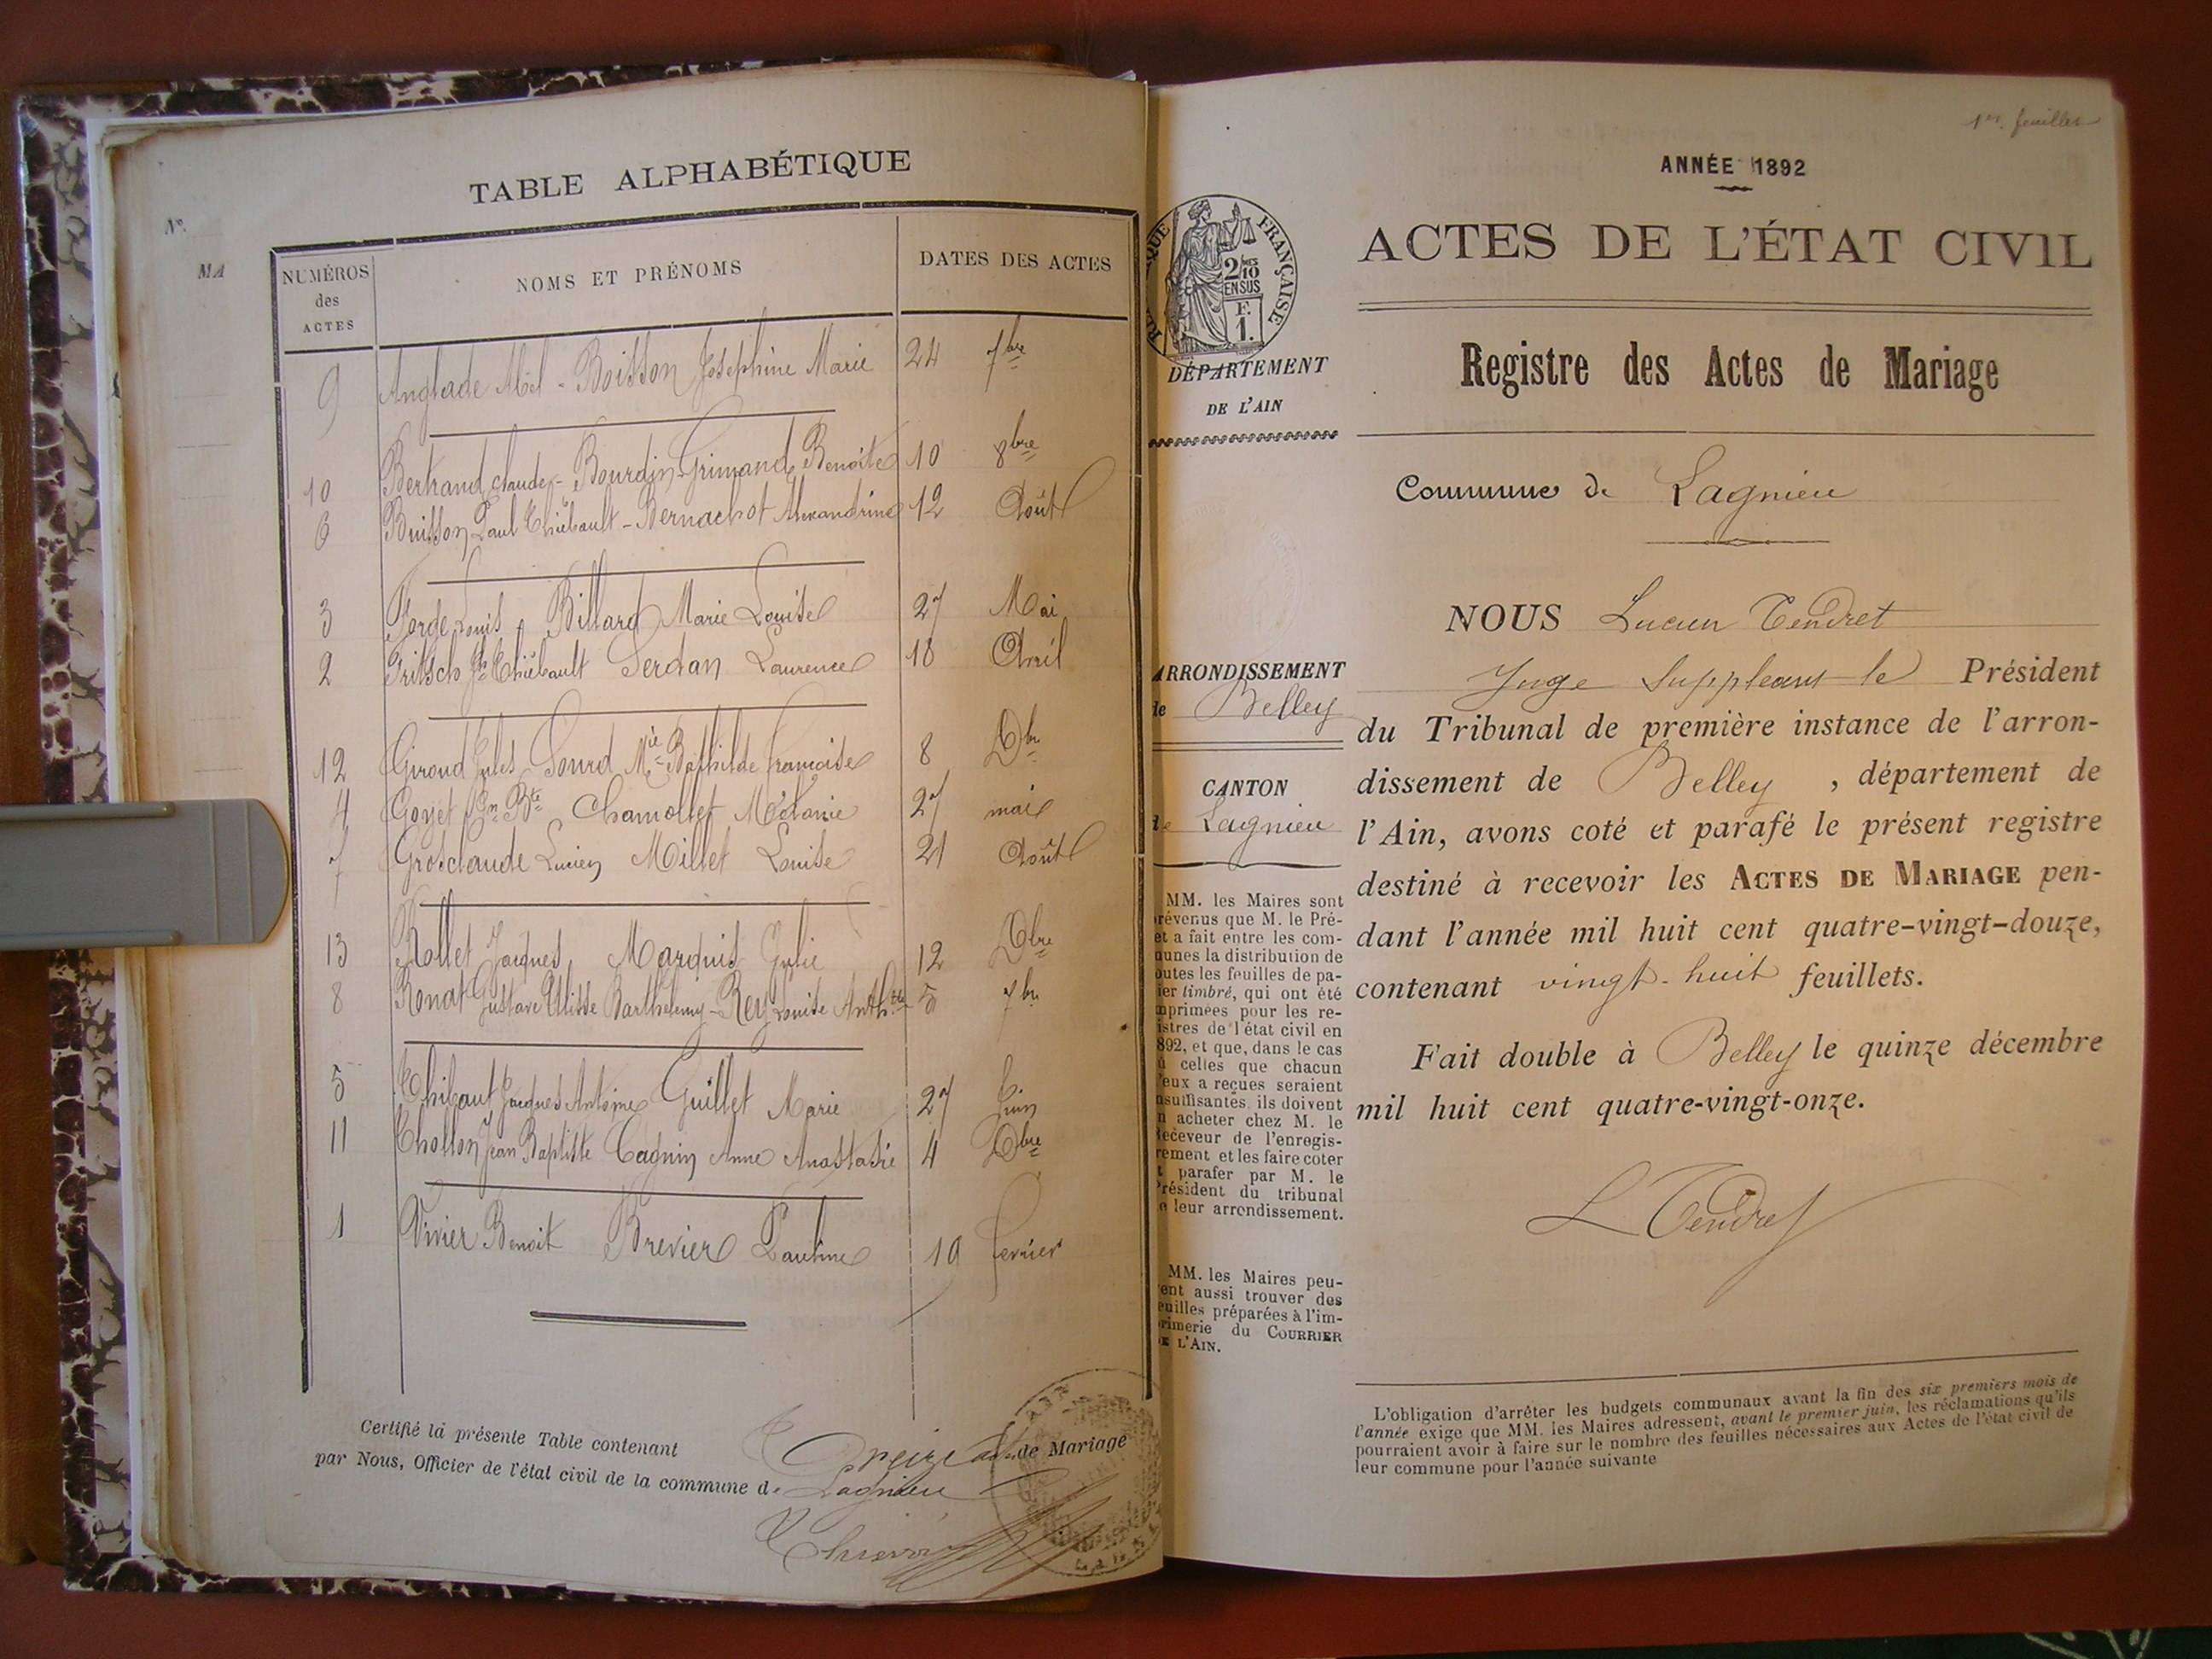 TABLE ALPHABÉTIQUE
N°.
MA
NUMÉROS des ACTES
NOMS ET PRÉNOMS
DATES DES ACTES
9 Anglade Abel - Boisson Joséphine Marie 24 7bre
10 Bertrand Claude - Bourdin-Grimaud Benoîte 10 8bre
6 Buisson Paul Thiébault - Bernachot Alexandrine 12 Août
3 Forge Louis, Billard Marie Louise 27 Mai
2 Fritsch Jh Thiébault Serdan Laurence 18 Avril
12 Giroud Jules Sourd Mie Bathilde Françoise 8 Xbre
4 Goyet Jn Bte Chamollet Mélanie 27 mai
7 Grosclaude Lucien Millet Louise 21 Août
13 Rollet Jacques Marquis Julie 12 Xbre
8 Ronat Gustave Ulisse Barthelemy - Rey Louise Anth.tte 5 7bre
5 Thibaut Jacques Antoine Guillet Marie 27 Juin
11 Thollon Jean Baptiste Cagnin Anne Anastasie 4 Xbre
1 Vivier Benoit Brevier Pauline 10 fevrier
Certifié la présente Table contenant Treize actes de Mariage
par Nous, Officier de l'état civil de la commune de Lagnieu
1er feuillet
ANNÉE 1892
ACTES DE L'ÉTAT CIVIL
Registre des Actes de Mariage
Commune de Lagnieu
NOUS Lucien Tendret
Juge suppléant le Président
du Tribunal de première instance de l'arron-
dissement de Belley , département de
l'Ain, avons coté et parafé le présent registre
destiné à recevoir les ACTES DE MARIAGE pen-
dant l'année mil huit cent quatre-vingt-douze,
contenant vingt-huit feuillets.
Fait double à Belley le quinze décembre
mil huit cent quatre-vingt-onze.
L Tendret
L'obligation d'arrêter les budgets communaux avant la fin des six premiers mois de
l'année exige que MM. les Maires adressent, avant le premier juin, les réclamations qu'ils
pourraient avoir à faire sur le nombre des feuilles nécessaires aux Actes de l'état civil de
leur commune pour l'année suivante
QUE FRANÇAISE
2/10
EN SUS
F.
1.
DÉPARTEMENT
DE L'AIN
ARRONDISSEMENT
de Belley
CANTON
de Lagnieu
MM. les Maires sont
prévenus que M. le Pré-
et a fait entre les com-
munes la distribution de
outes les feuilles de pa-
ier timbré, qui ont été
mprimées pour les re-
istres de l'état civil en
892, et que, dans le cas
ù celles que chacun
'eux a reçues seraient
nsuffisantes, ils doivent
n acheter chez M. le
Receveur de l'enregis-
rement et les faire coter
t parafer par M. le
Président du tribunal
e leur arrondissement.
MM. les Maires peu-
ent aussi trouver des
euilles préparées à l'im-
primerie du COURRIER
DE L'AIN.